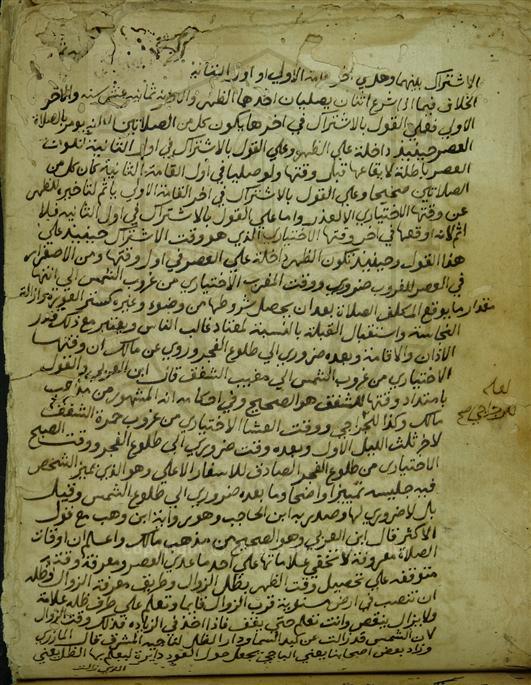 الاشتراك بينهما وهل في آخر قامة الأولى أو أول الثانية
الخلاف فيما إذا شرع اثنان يصليان أحدهما الظهر والآخر
الأولى فعلى القول بالاشتراك في آخرها يكون كل من الصلاتين
العصر حينئذ داخلة على الظهر وعلى القول بالاشتراك في أول الثانية تكون
العصر باطلة لإيقاعها قبل وقتها ولو صليا في أول القامة الثانية كان كل من
الصلاتين صحيحا وعلى القول بالاشتراك في آخر القامة الأولى يأثم لتأخيره الظهر
عن وقتها الاختياري إلا لعذر وأما على القول بالاشتراك في أول الثانية فلا
إثم لأنه أوقعها في آخر وقتها الاختياري الذي هو وقت الاشتراك حينئذ على
هذا القول وحينئذ تكون الظهر داخلة على العصر في أول وقتها ومن الاصفرار
في العصر للغروب ضروري ووقت المغرب الاختياري من غروب الشمس إلى انتها
مقدار ما يوقع المكلف الصلاة بعد أن يحصل شروطها من وضوء وغيره كستر العورة وإزالة
النجاسة واستقبال القبلة بالنسبة لمعتاد غالب الناس ويعتبر مع ذلك قدر
الأذان والإقامة وبعده ضروري إلى طلوع الفجر وروي عن مالك أن وقتها
الاختياري من غروب الشمس إلى مغيب الشفق قال ابن العربي والقول
بامتداد وقتها للشفق هو الصحيح وفي أحكامه أنه المشهور من مذهب
مالك وكذا ووقت العشا الاختياري من غروب حمرة الشفق
لآخر ثلث الليل الأول وبعده وقت ضروري إلى طلوع الفجر ووقت الصبح
الاختياري من طلوع الفجر الصادق للاسفار الأعلى وهو الذي يميز الشخص
فيه جليسه تمييزا واضحا وما بعده ضروري إلى طلوع الشمس وقيل
بل لا ضروري لها وصدر به ابن الحاجب وهو رواية ابن وهب مع قول
الأكثر قال ابن العربي وهو الصحيح من مذهب مالك واعلم أن أوقات
الصلاة معروفة لا تخفى علاماتها على أحد ما عدى العصر ومعرفة وقته
متوقفة على تحصيل وقت الظهر بظل الزوال وطريق معرفة الزوال وظله
أن تنصب في أرض مستوية قرب الزوال قائما وتعلم على طرف ظله علامة
ولا يزال ينقص وأنت تعلم حتى يقف فإذا أخذ في الزيادة فذلك وقت الزوال
لأن الشمس قد زالت عن كبد السما ودار الظل لناحية المشرق قال المازري
وزاد بعض أصحابنا يعني الباجي يجعل حول العود دائرة ليعلم بها الظل يعني
الذي زالت
لعله